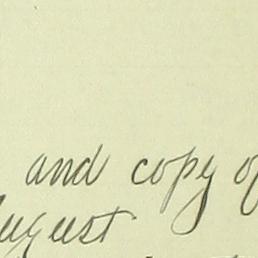 and copy of
August